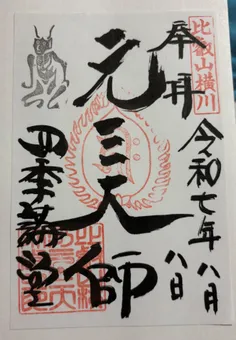 比叡山横川
奉拝
令和七年八月八日
元三大師
四季講堂